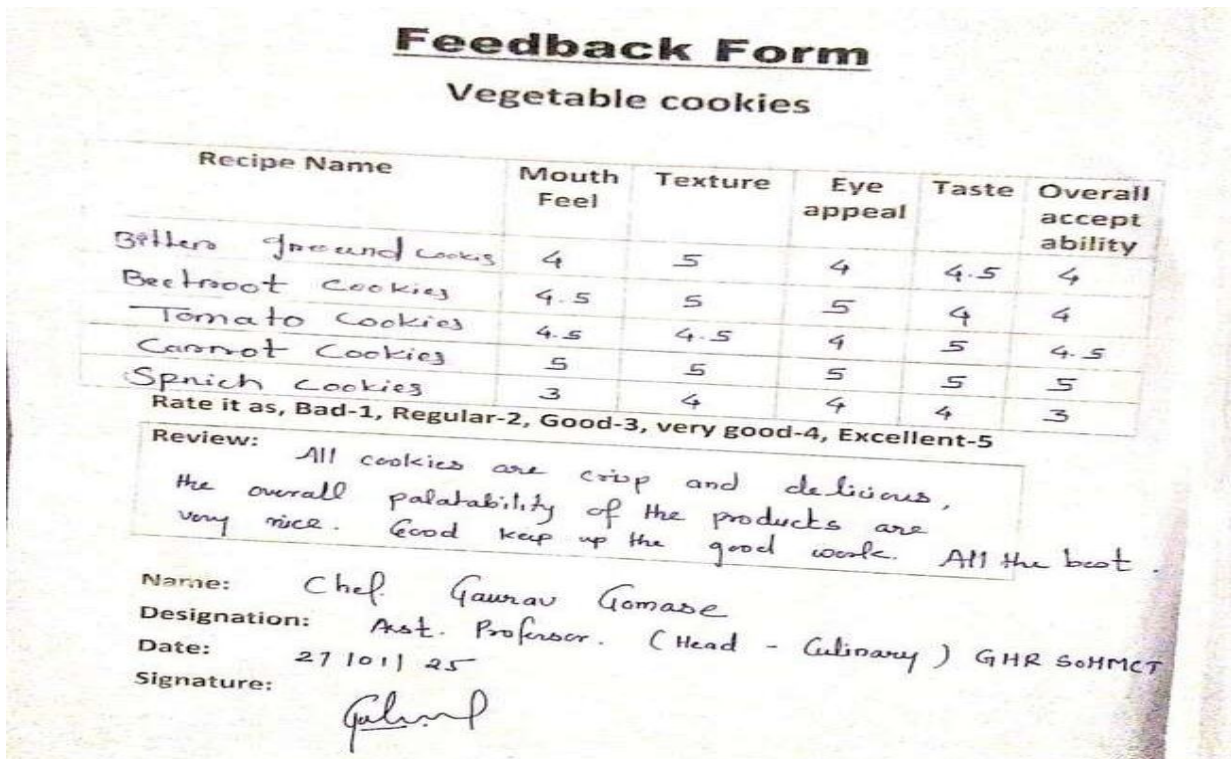 Feedback Form
Vegetable cookies
Recipe Name Mouth Feel Texture Eye appeal Taste Overall accept ability
Bitters ground cookis 4 5 4 4.5 4
Beetroot Cookies 4.5 5 5 4 4
Tomato Cookies 4.5 4.5 4 5 4.5
Carrot Cookies 5 5 5 5 5
Spnich Cookies 3 4 4 4 3
Rate it as, Bad-1, Regular-2, Good-3, very good-4, Excellent-5
Review: All cookies are crisp and delicious,
the overall palatability of the products are
very nice. Good keep up the good work. All the best.
Name: Chef. Gaurav Gomase
Designation: Asst. Professor. (Head - Culinary) GHR SoHMCT
Date: 27/01/25
Signature: